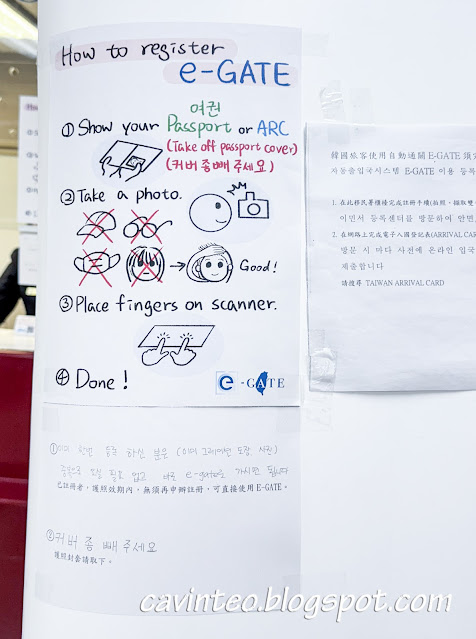 How to register
e-GATE
여권
① Show your Passport or ARC
(Take off passport cover)
(커버 좀 빼 주세요)
② Take a photo.
Good!
③ Place fingers on scanner.
④ Done!
e-GATE
① 이미 한번 등록 하신 분은
필요 없고 바로 e-gate로 가시면 됩니다
已註冊者，護照效期內，無須再申辦註冊，可直接使用 E-GATE。
② 커버 좀 빼 주세요
護照封套請取下。
韓國旅客使用自動通關 E-GATE 須
자동출입국시스템 E-GATE 이용 등록
1. 在此移民署櫃檯完成註冊手續(拍照、擷取雙
이민서 등록센터를 방문하여 안면,
2. 在網路上完成電子入國登記表(ARRIVAL CAR
방문 시 마다 사전에 온라인 입국
제출합니다
請搜尋 TAIWAN ARRIVAL CARD
cavinteo.blogspot.com